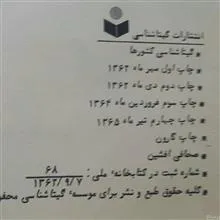 انتشارات گیتاشناسی
گیتاشناسی کشورها
چاپ اول مهر ماه ۱۳۶۲
چاپ دوم دی ماه ۱۳۶۲
چاپ سوم فروردین ماه ۱۳۶۴
چاپ چهارم تیر ماه ۱۳۶۵
چاپ کارون
صحافی افشین
شماره ثبت در کتابخانهٔ ملی : ۶۸
۱۳۶۲/۹/۷
کلیه حقوق طبع و نشر برای موسسهٔ گیتاشناسی محفو